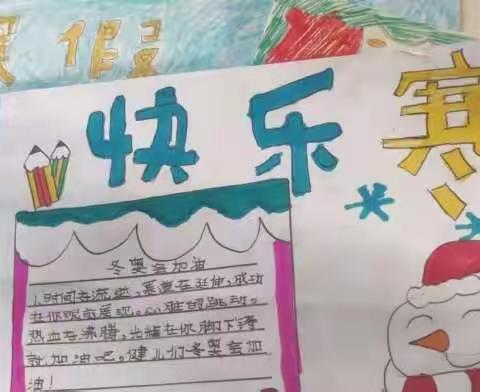 假
快乐寒
冬奥会加油
1.时间在流逝,赛道在延伸,成功
在你眼前展现。心的跳动。
热血在沸腾,光辉在你脚下
就加油吧,健儿们冬奥会加
油!